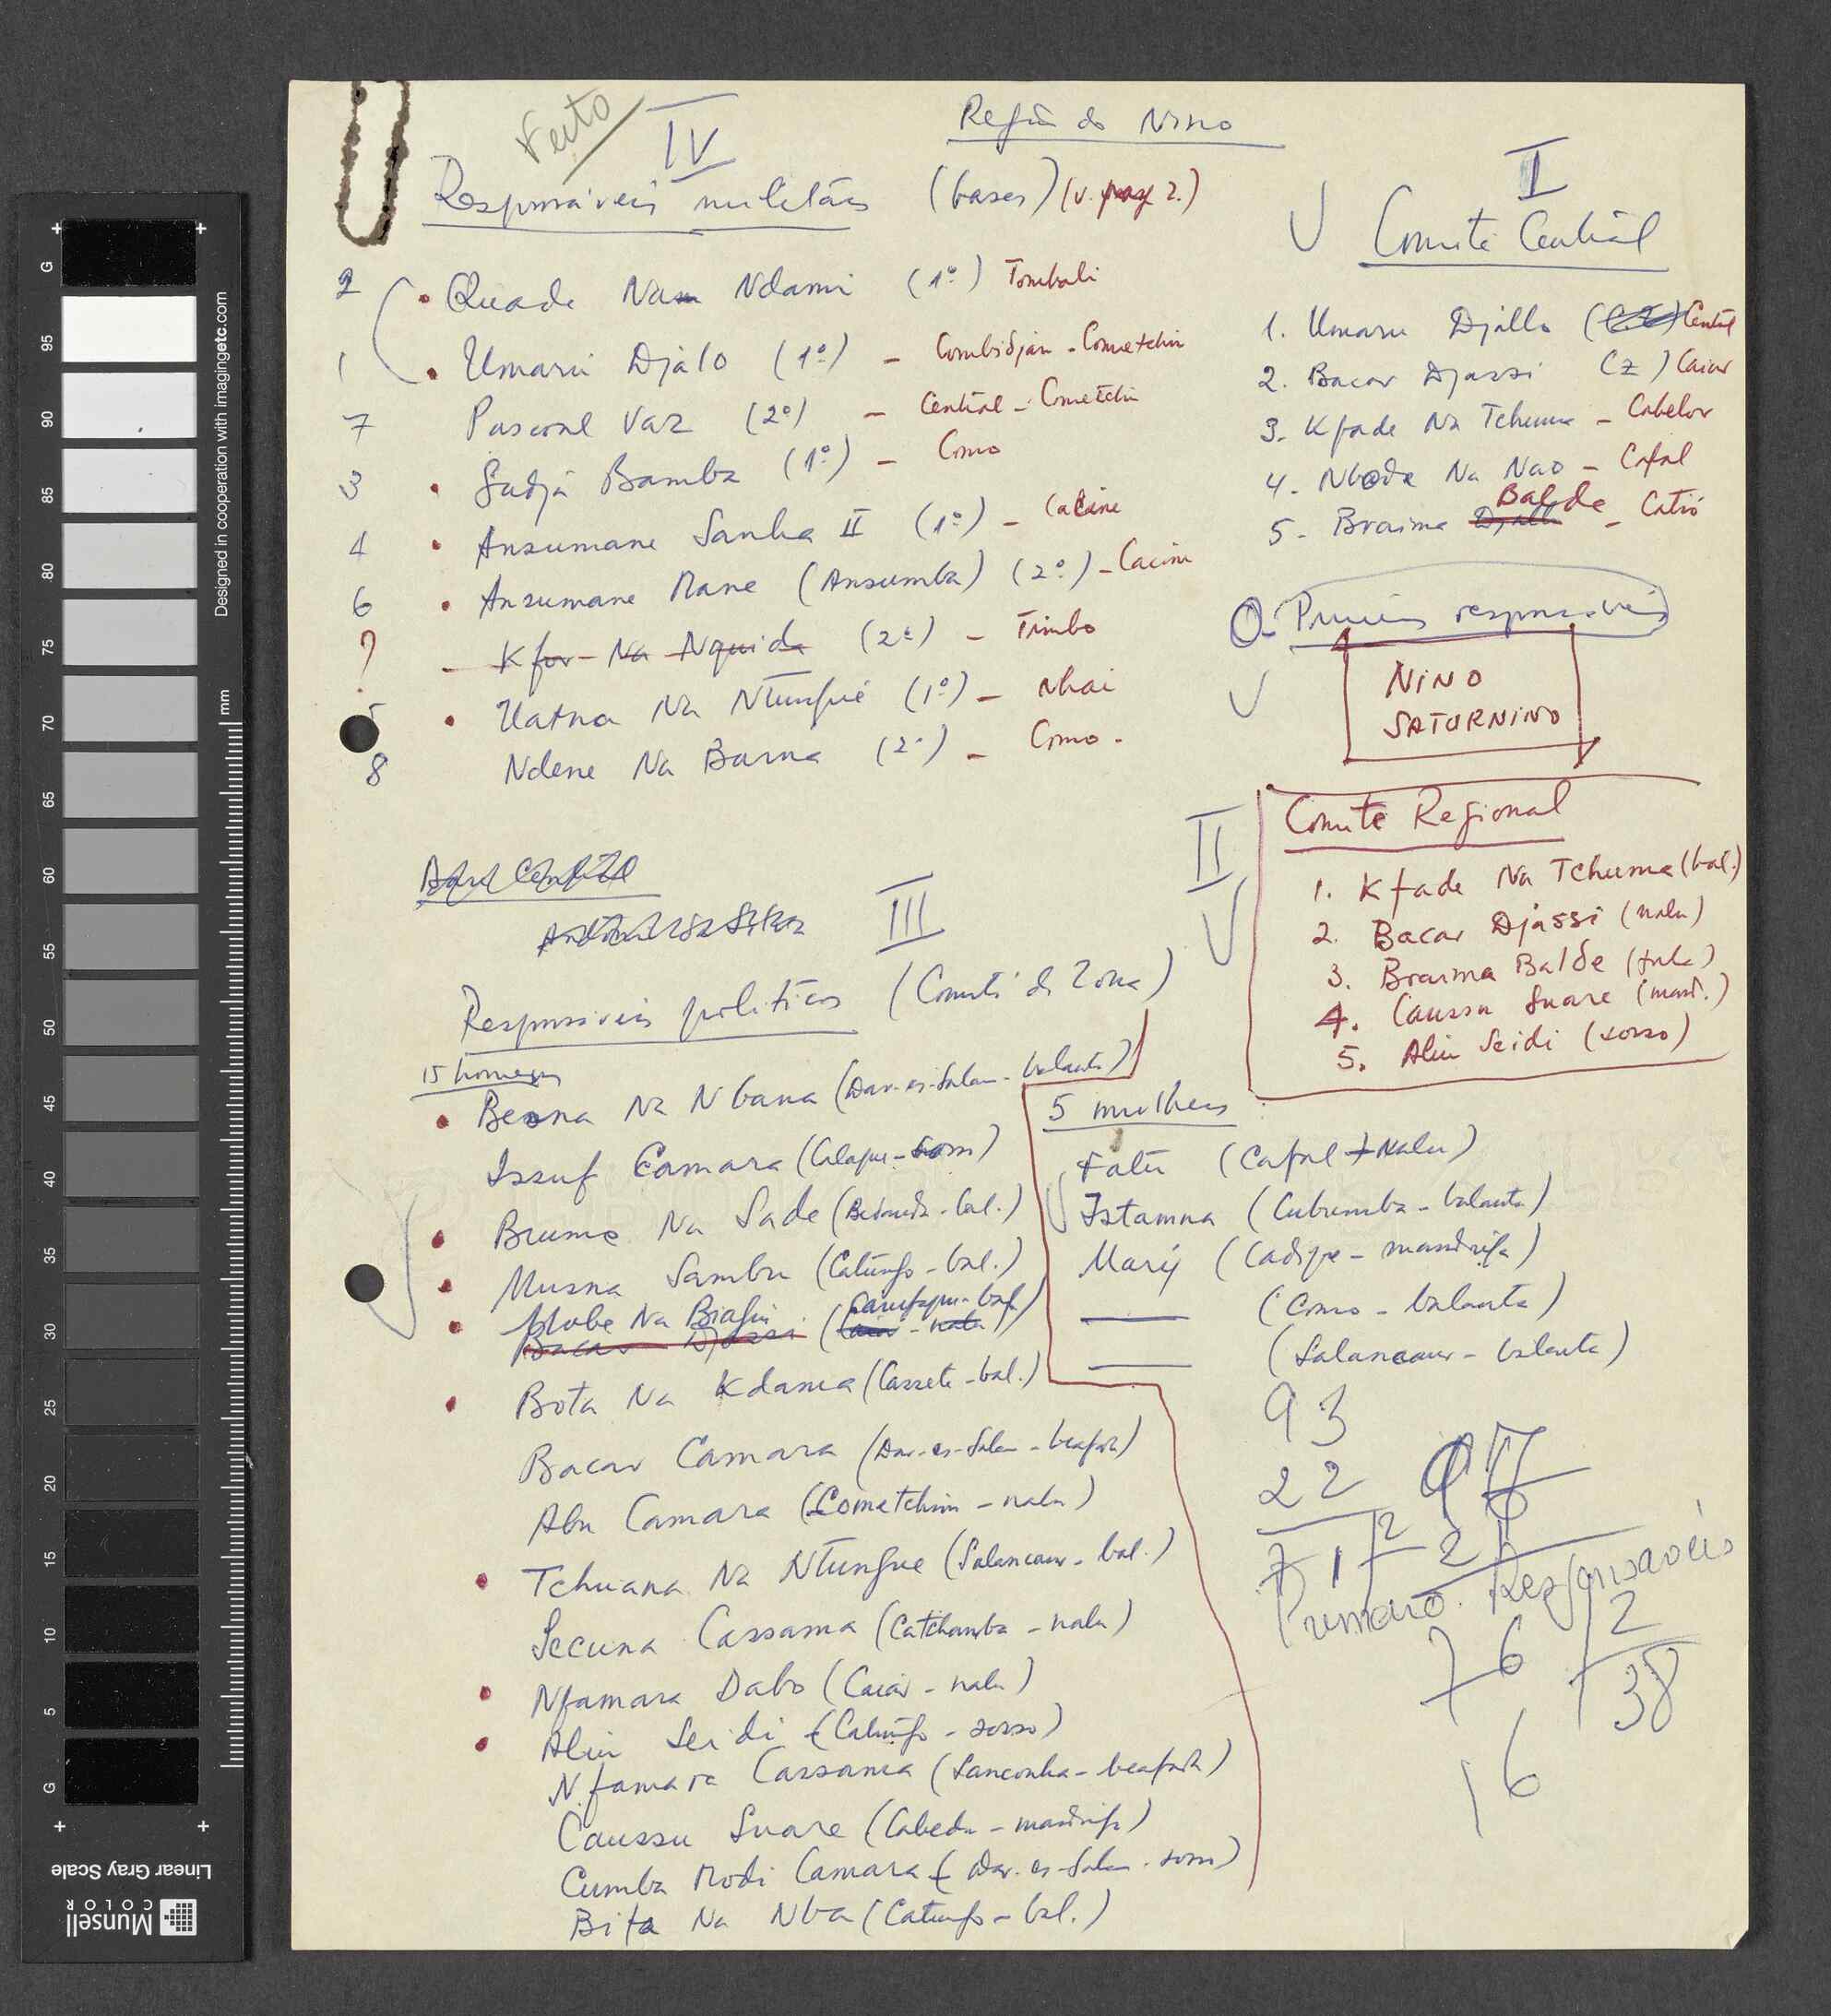 Feito
IV
Região do Nino
Responsáveis militares (bases) (v. pag 2.)
2 • Quade Na Ndami (1º) Tombali
1 • Umaru Djalo (1º) - Combidjan - Cometchin
7 Pascoal Vaz (2º) - Central - Cometchin
3 • Sadjá Bamba (1º) - Como
4 • Ansumane Sanha II (1º) - Cacine
6 • Ansumane Mane (Ansumba) (2º) - Cacine
? - Kfor Na Nquida (2º) - Timbo
5 • Uatna Na Ntungué (1º) - Nhai
8 Ndene Na Barna (2º) - Como -
I
Comité Central
1. Umaru Djallo Central
2. Bacar Djassi (Z) Caiar
3. Kfade Na Tchuma - Cabelov
4. Nbode Na Nao - Cafal
5 - Braima Djallo Balde - Catió
O - Primeiros responsáveis
NINO
SATURNINO
II
Comité Regional
1. Kfade Na Tchuma (bal.)
2. Bacar Djassi (nalu)
3. Braima Balde (fula)
4. Caussu Suare (mand.)
5. Aliu Seidi (sosso)
III
Responsáveis políticos (Comité de Zona)
15 homens
• Beona Na Nbana (Dar-es-Salam - balanta)
Issuf Camara (Calaque - sosso)
• Brume Na Sade (Bedanda - bal.)
• Musna Sambu (Catungo - bal.)
• Nobe Na Biafin (Camfaque - bal.)
Bacar Djassi (Caiar - nalu)
• Bota Na Kdama (Cassete - bal.)
Bacar Camara (Dar-es-Salam - beafada)
Abu Camara (Cometchim - nalu)
• Tchuana Na Ntungue (Salancaur - bal.)
Secuna Cassama (Catchamba - nalu)
• Nfamara Dabo (Caiar - nalu)
• Aliu Seidi (Catungo - sosso)
Nfamara Cassama (Sanconha - beafada)
Caussu Suare (Cabedu - mandinga)
Cumba Modi Camara (Dar-es-Salam - sosso)
Bifa Na Nba (Catungo - bal.)
5 mulheres
Fatu (Cafal - Nalu)
Istamna (Cubumba - balanta)
Mary (Cadique - mandinga)
— (Como - balanta)
— (Salancaur - balanta)
93
22
71
2
2
Primeiro Responsáveis
76 2
38
16
Designed in cooperation with imagingetc.com
mm
G 95 90 85 80 75 70 65 60 55 50 45 40 35 30 25 20 15 10 5 G
Linear Gray Scale
Munsell
COLOR